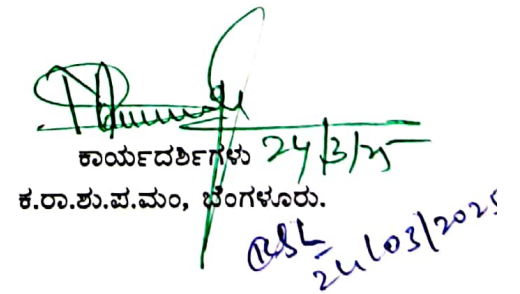 ಕಾರ್ಯದರ್ಶಿಗಳು 24/3/25
ಕ.ರಾ.ಶು.ಪ.ಮಂ, ಬೆಂಗಳೂರು.
24/03/2025